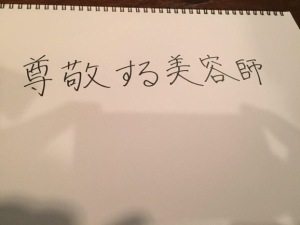 尊敬する美容師